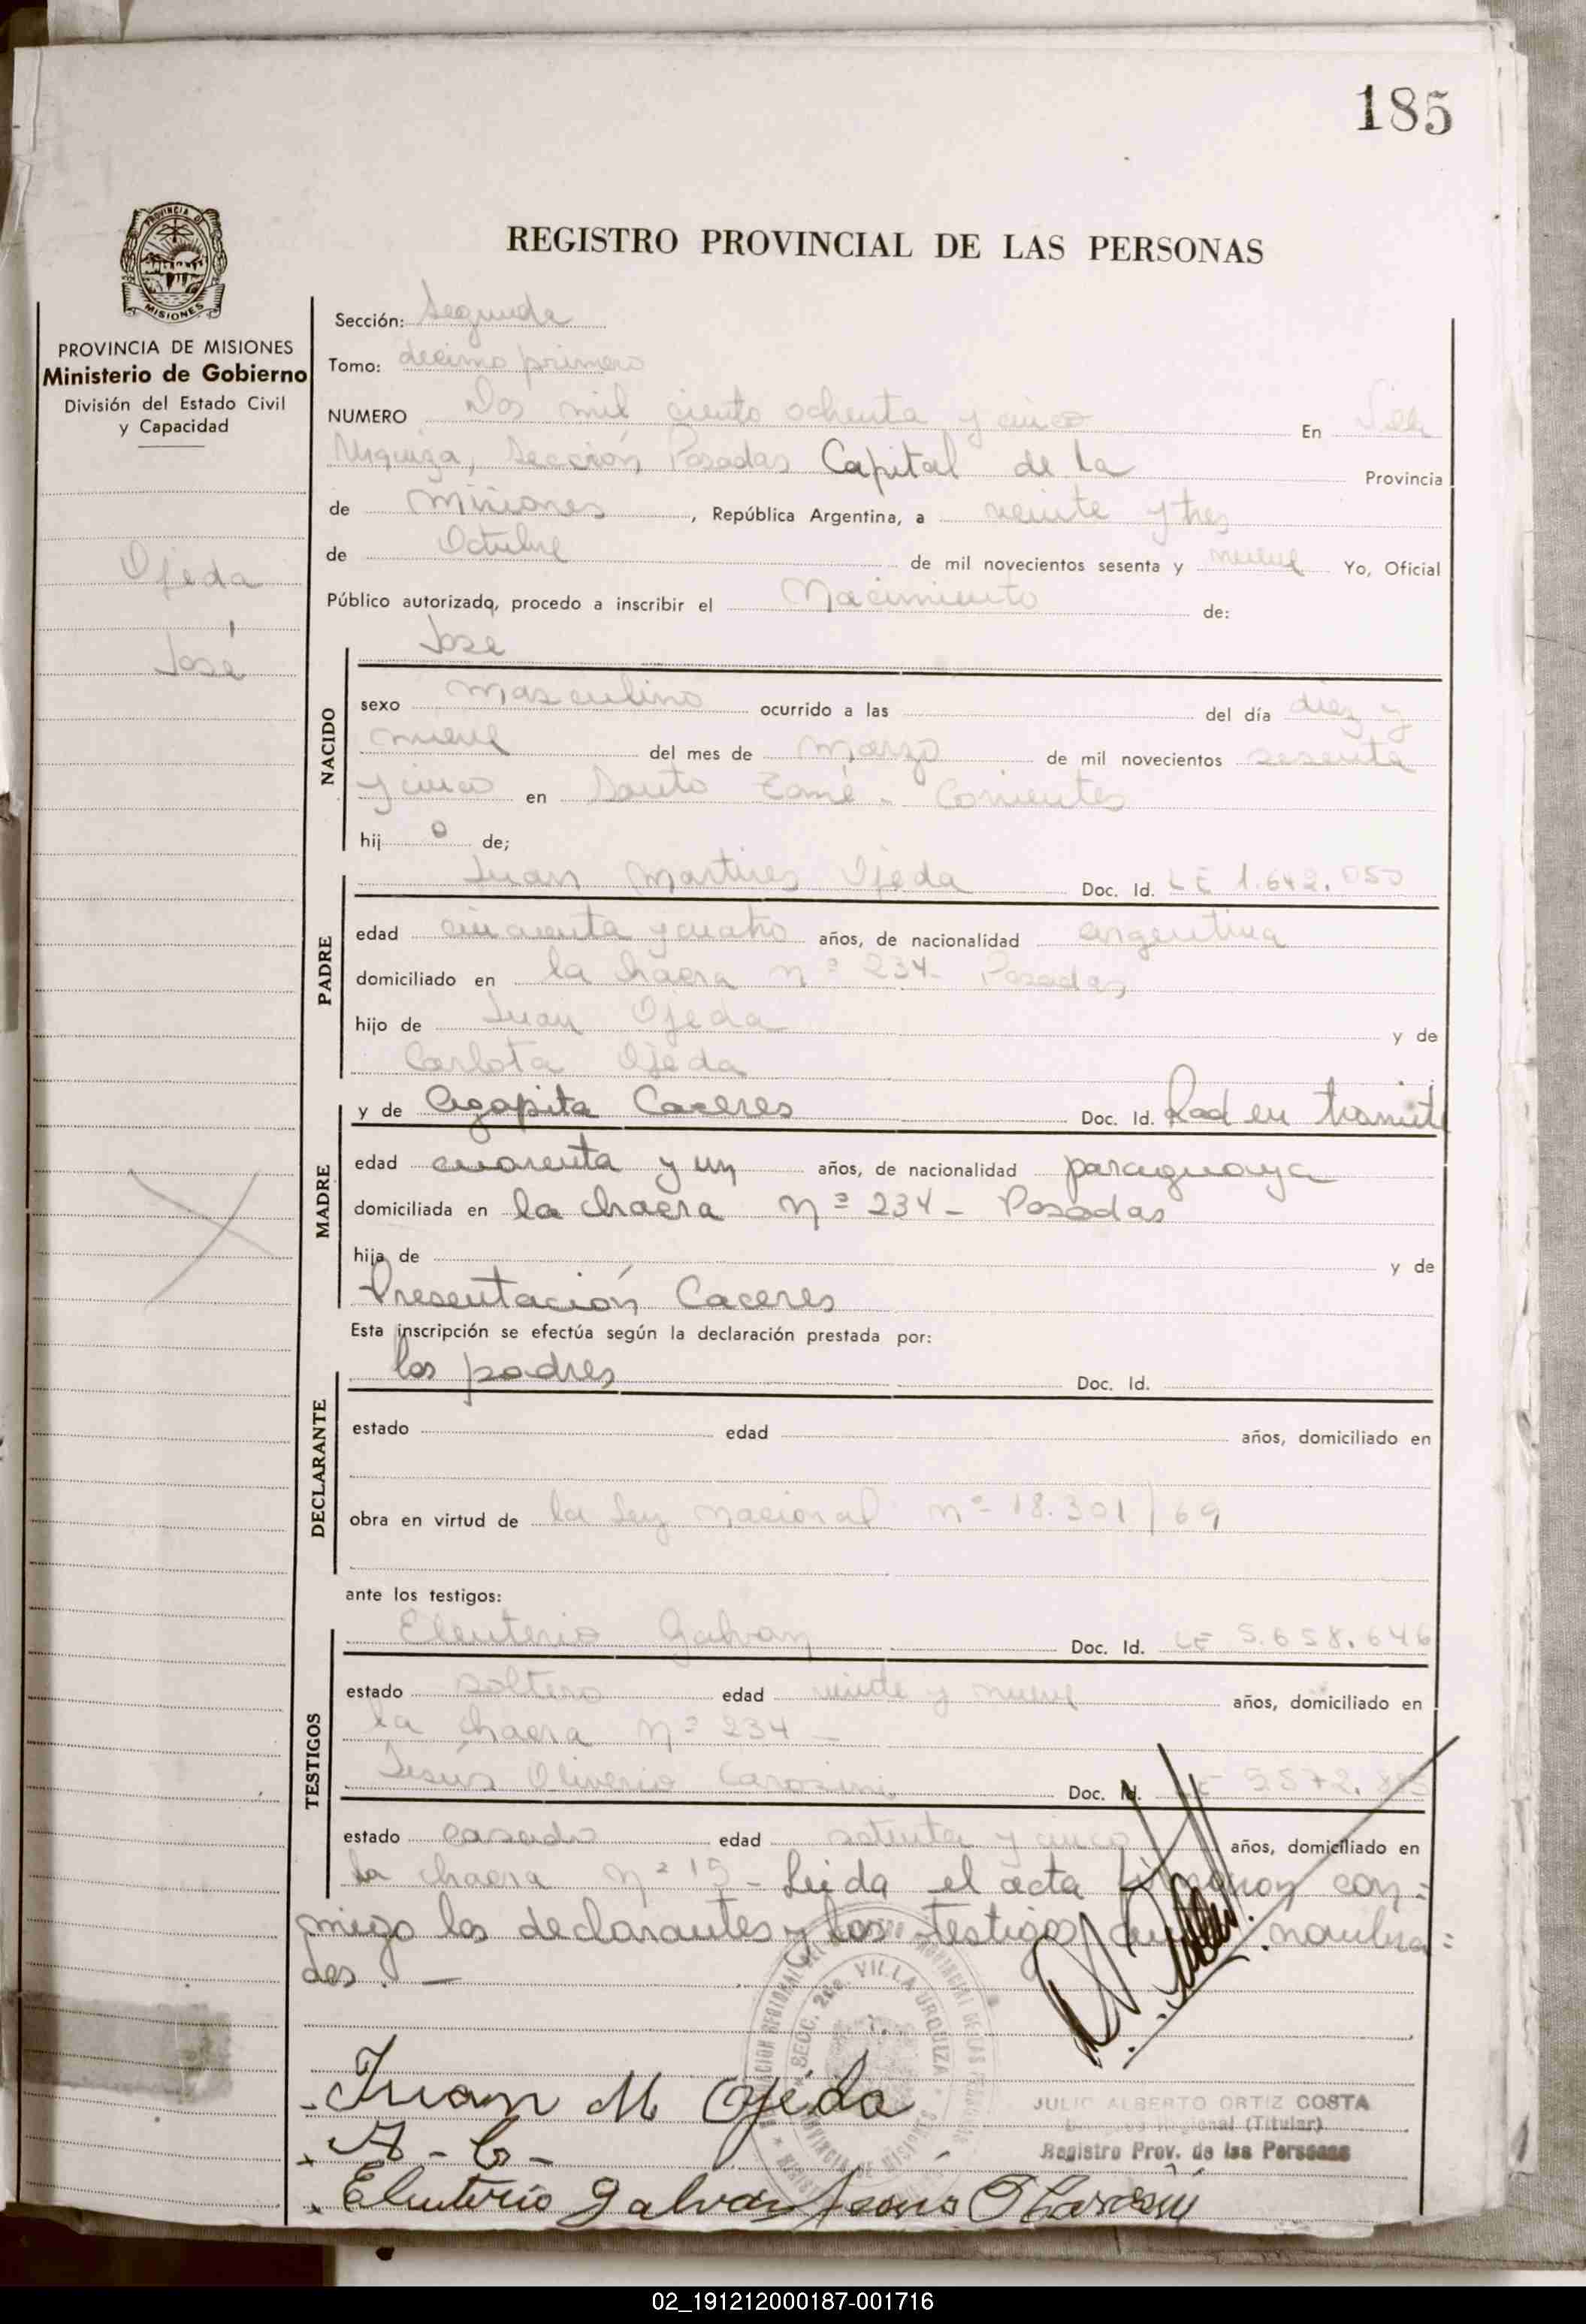 185
PROVINCIA DE MISIONES
REGISTRO PROVINCIAL DE LAS PERSONAS
PROVINCIA DE MISIONES
Ministerio de Gobierno
División del Estado Civil
y Capacidad
Ojeda
José
Sección: Segunda
Tomo: decimo primero
NUMERO Dos mil ciento ochenta y cinco En Villa
Urquiza, Sección Posadas Capital de la Provincia
de Misiones, República Argentina, a veinte y tres
de Octubre de mil novecientos sesenta y nueve Yo, Oficial
Público autorizado, procedo a inscribir el Nacimiento de:
José
NACIDO
sexo masculino ocurrido a las del día diez y
nueve del mes de Marzo de mil novecientos sesenta
y cinco en Santo Tomé - Corrientes
hijo de;
PADRE
Juan Martires Ojeda Doc. Id. LE 1.642.050
edad cincuenta y cuatro años, de nacionalidad argentina
domiciliado en la chacra nº 234 - Posadas
hijo de Juan Ojeda y de
Carlota Ojeda
MADRE
y de Agapita Caceres Doc. Id. Rad en tramite
edad cuarenta y un años, de nacionalidad paraguaya
domiciliada en la chacra nº 234 - Posadas
hija de y de
Presentación Caceres
Esta inscripción se efectúa según la declaración prestada por:
DECLARANTE
los padres Doc. Id.
estado edad años, domiciliado en
obra en virtud de la Ley nacional nº 18.301/69
ante los testigos:
TESTIGOS
Eleuterio Galvan Doc. Id. LE 5.658.646
estado soltero edad veinte y nueve años, domiciliado en
la chacra nº 234 -
Jesús Oliverio Doc. Id. LE
estado casado edad setenta y cinco años, domiciliado en
la chacra nº 15 - Leida el acta firmaron con=
migo los declarantes y los testigos nombra=
dos. -
SECC. 2da. VILLA URQUIZA
PROVINCIA DE MISIONES
- Juan M Ojeda
JULIO ALBERTO ORTIZ COSTA
Regional (Titular)
Registro Prov. de las Personas
x A - C -
x Eleuterio Galvan Jesus O
02_191212000187-001716